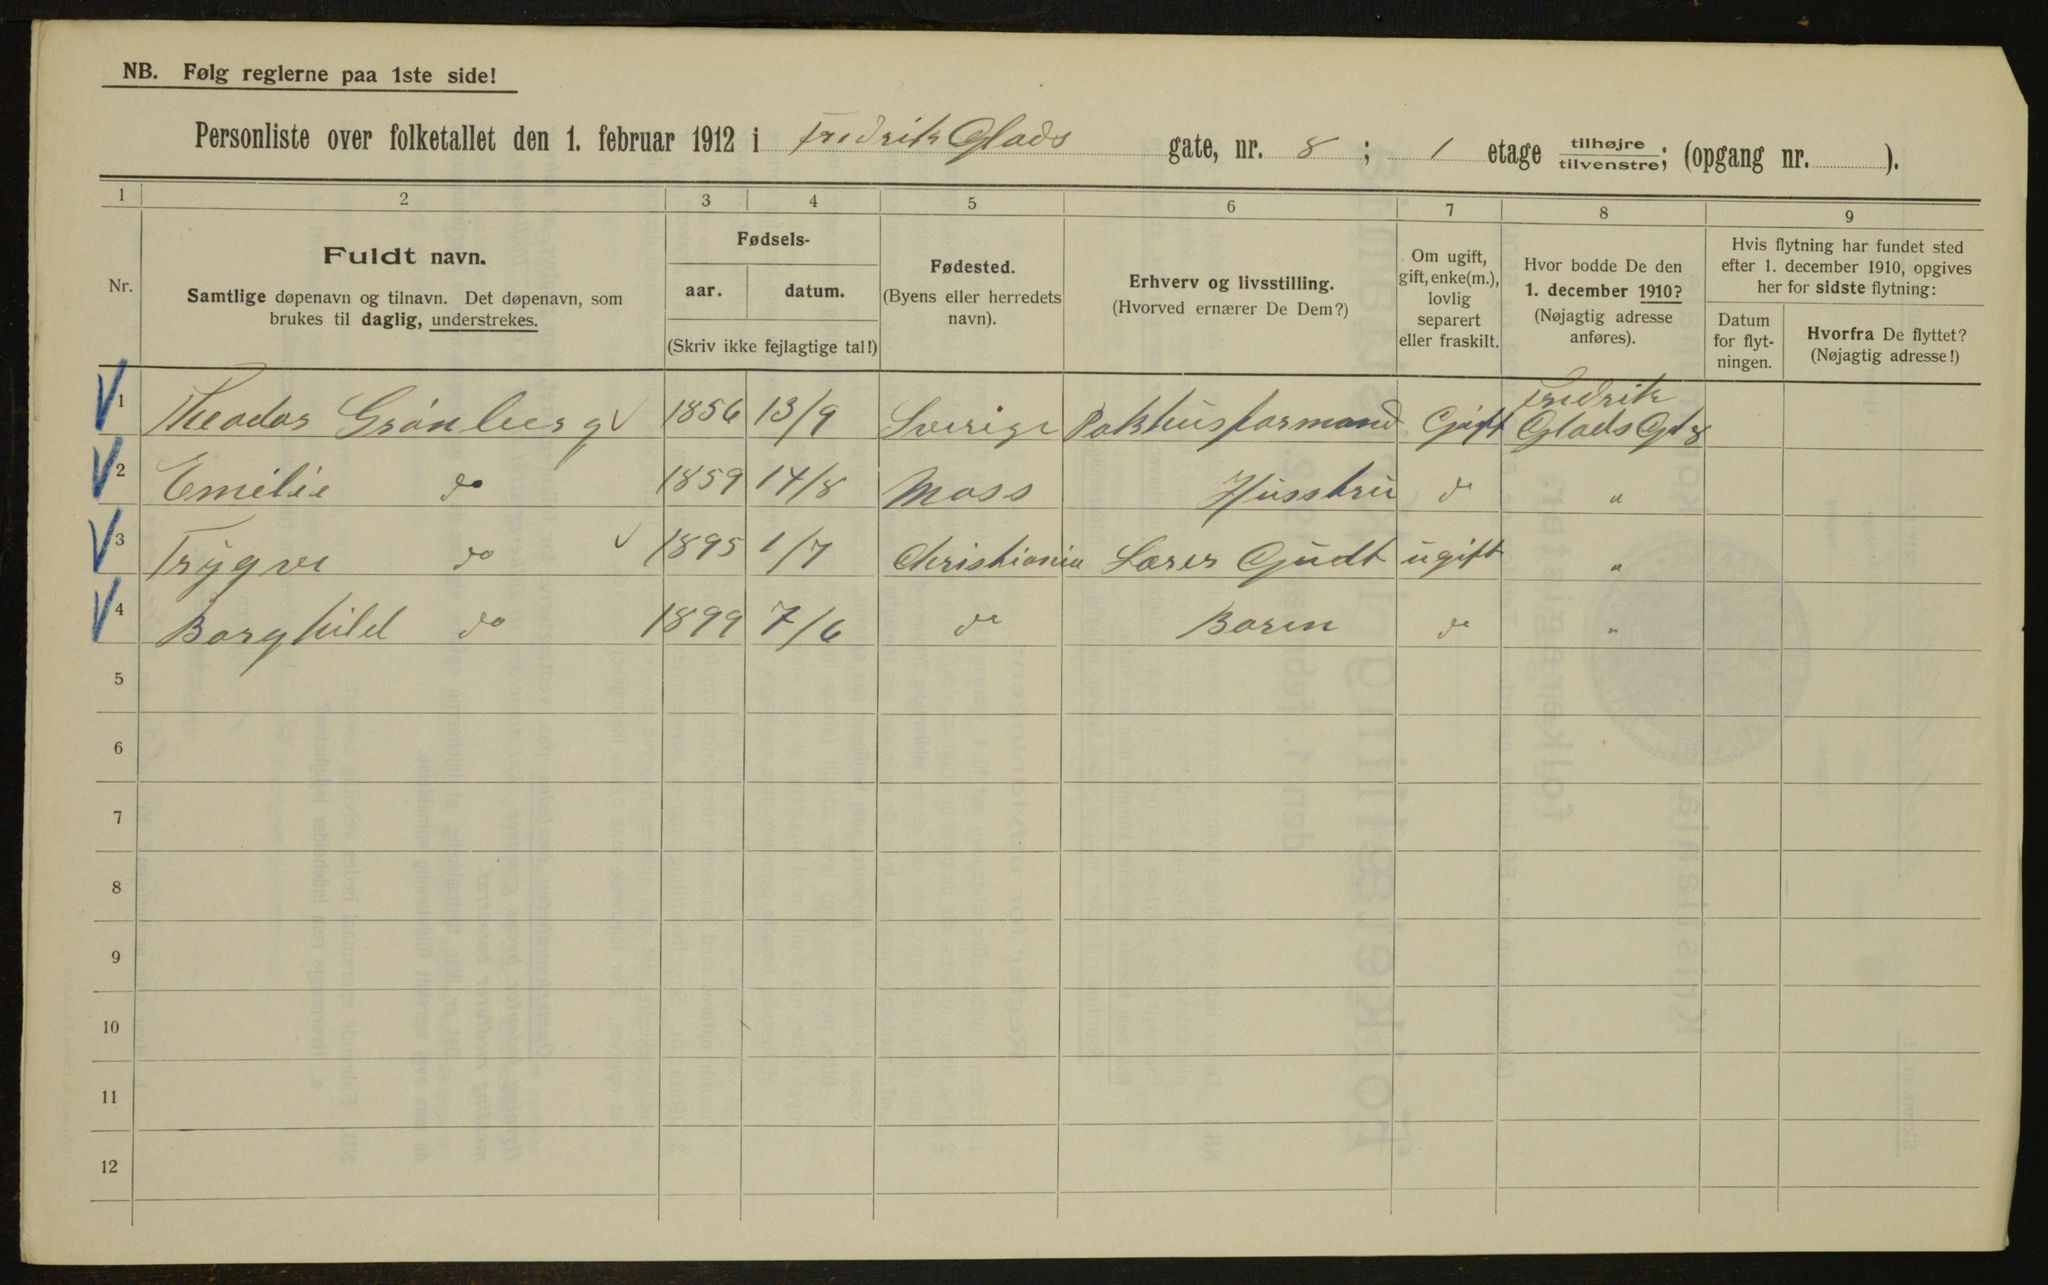 NB. Følg reglerne paa 1ste side!
Personliste over folketallet den 1. februar 1912 i Fredrik Glads gate, nr. 8 ; 1 etage tilhøjre/tilvenstre; (opgang nr. ).
1 2 3 4 5 6 7 8 9
Nr.
Fuldt navn.
Samtlige døpenavn og tilnavn. Det døpenavn, som
brukes til daglig, understrekes.
Fødsels-
aar. datum.
(Skriv ikke fejlagtige tal!)
Fødested.
(Byens eller herredets
navn).
Erhverv og livsstilling.
(Hvorved ernærer De Dem?)
Om ugift,
gift, enke(m.),
lovlig
separert
eller fraskilt.
Hvor bodde De den
1. december 1910?
(Nøjagtig adresse
anføres).
Hvis flytning har fundet sted
efter 1. december 1910, opgives
her for sidste flytning:
Datum
for flyt-
ningen.
Hvorfra De flyttet?
(Nøjagtig adresse!)
1 Theodor Grönberg 1856 13/9 Sverige Pakhusformand Gift Fredrik
Glads Gt 8
2 Emilie do 1859 14/8 Moss Husstru do "
3 Trygve do 1895 1/7 Christiania Lærer Gudt ugift "
4 Borghild do 1899 7/6 do Baren do "
5
6
7
8
9
10
11
12